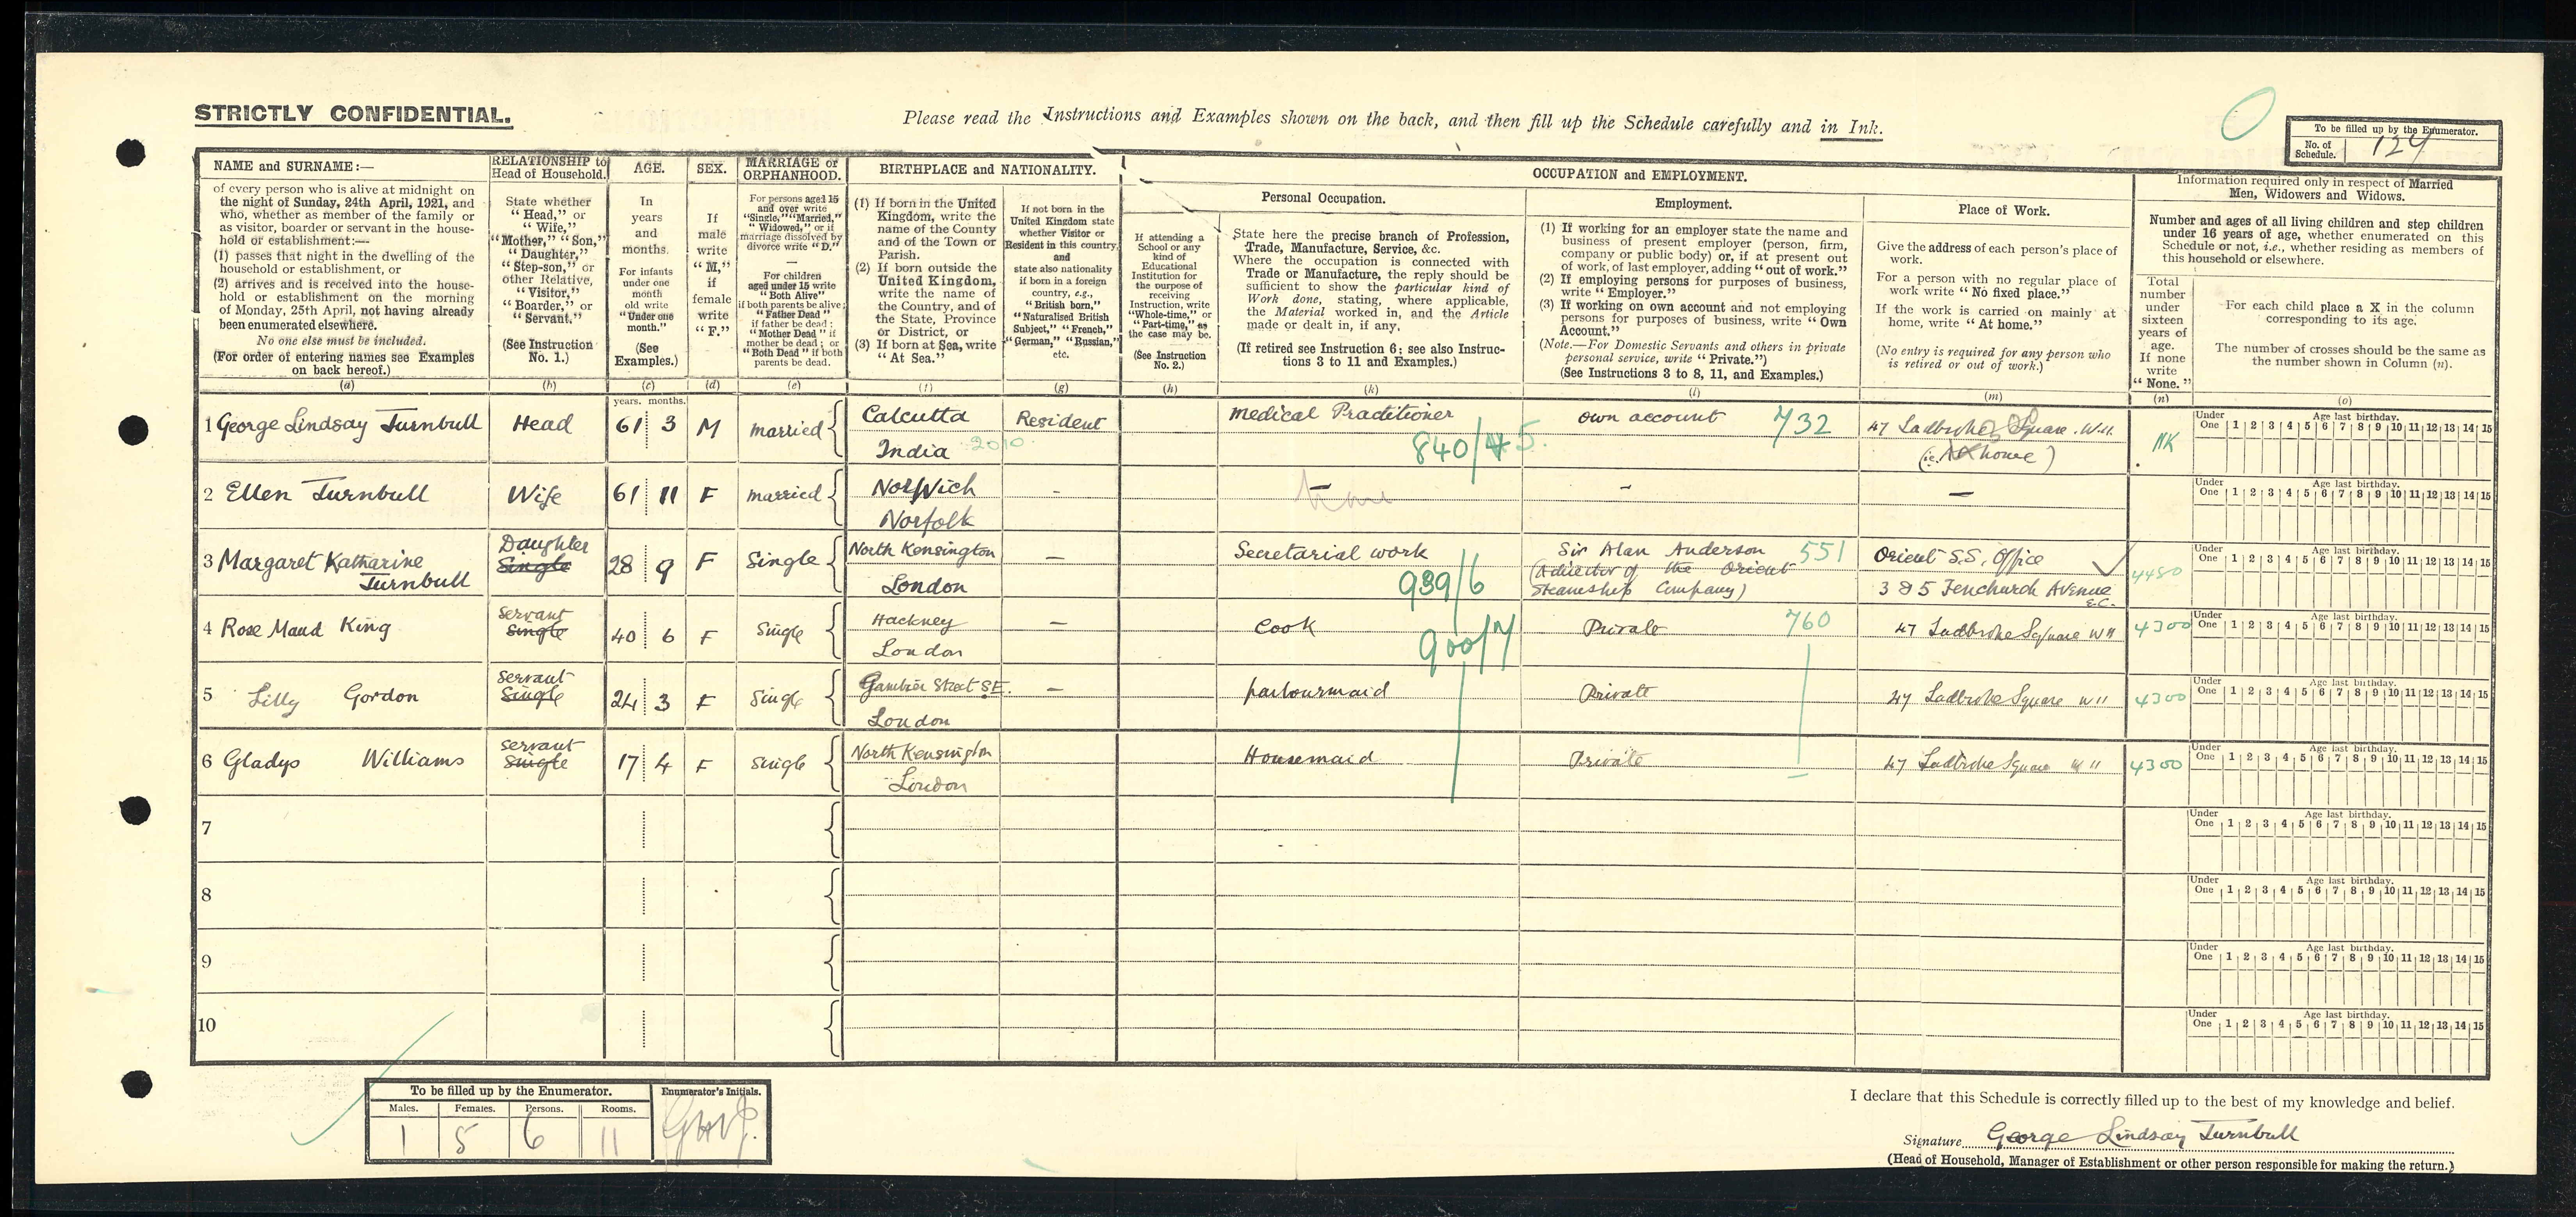 STRICTLY CONFIDENTIAL.
Please read the Instructions and Examples shown on the back, and then fill up the Schedule carefully and in Ink.
To be filled up by the Enumerator.
No. of Schedule. 124
NAME and SURNAME:—
of every person who is alive at midnight on
the night of Sunday, 24th April, 1921, and
who, whether as member of the family or
as visitor, boarder or servant in the house-
hold or establishment:—
(1) passes that night in the dwelling of the
household or establishment, or
(2) arrives and is received into the house-
hold or establishment on the morning
of Monday, 25th April, not having already
been enumerated elsewhere.
No one else must be included.
(For order of entering names see Examples
on back hereof.)
(a)
RELATIONSHIP to
Head of Household.
State whether
"Head," or
"Wife,"
"Mother," "Son,"
"Daughter,"
"Step-son," or
other Relative,
"Visitor,"
"Boarder," or
"Servant."
(See Instruction
No. 1.)
(b)
AGE.
In
years
and
months.
For infants
under one
month
old write
"Under one
month."
(See
Examples.)
(c)
SEX.
If
male
write
"M,"
if
female
write
"F."
(d)
MARRIAGE or
ORPHANHOOD.
For persons aged 15
and over write
"Single," "Married,"
"Widowed," or if
marriage dissolved by
divorce write "D."
—
For children
aged under 15 write
"Both Alive"
if both parents be alive;
"Father Dead"
if father be dead;
"Mother Dead" if
mother be dead; or
"Both Dead" if both
parents be dead.
(e)
BIRTHPLACE and NATIONALITY.
(1) If born in the United
Kingdom, write the
name of the County
and of the Town or
Parish.
(2) If born outside the
United Kingdom,
write the name of
the Country, and of
the State, Province
or District, or
(3) If born at Sea, write
"At Sea."
(f)
If not born in the
United Kingdom state
whether Visitor or
Resident in this country,
and
state also nationality
if born in a foreign
country, e.g.,
"British born,"
"Naturalised British
Subject," "French,"
"German," "Russian,"
etc.
(g)
OCCUPATION and EMPLOYMENT.
If attending a
School or any
kind of
Educational
Institution for
the purpose of
receiving
Instruction, write
"Whole-time," or
"Part-time," as
the case may be.
(See Instruction
No. 2.)
(h)
Personal Occupation.
State here the precise branch of Profession,
Trade, Manufacture, Service, &c.
Where the occupation is connected with
Trade or Manufacture, the reply should be
sufficient to show the particular kind of
Work done, stating, where applicable,
the Material worked in, and the Article
made or dealt in, if any.
(If retired see Instruction 6; see also Instruc-
tions 3 to 11 and Examples.)
(k)
Employment.
(1) If working for an employer state the name and
business of present employer (person, firm,
company or public body) or, if at present out
of work, of last employer, adding "out of work."
(2) If employing persons for purposes of business,
write "Employer."
(3) If working on own account and not employing
persons for purposes of business, write "Own
Account."
(Note.—For Domestic Servants and others in private
personal service, write "Private.")
(See Instructions 3 to 8, 11, and Examples.)
(l)
Place of Work.
Give the address of each person's place of
work.
For a person with no regular place of
work write "No fixed place."
If the work is carried on mainly at
home, write "At home."
(No entry is required for any person who
is retired or out of work.)
(m)
Information required only in respect of Married
Men, Widowers and Widows.
Number and ages of all living children and step children
under 16 years of age, whether enumerated on this
Schedule or not, i.e., whether residing as members of
this household or elsewhere.
Total
number
under
sixteen
years of
age.
If none
write
"None."
(n)
For each child place a X in the column
corresponding to its age.
The number of crosses should be the same as
the number shown in Column (n).
(o)
years. months.
1 George Lindsay Turnbull Head 61 3 M married Calcutta India 2010 Resident medical Practitioner 840/45. own account 732 47 Ladbroke Square. W.11. (i.e. At home) NK
Under One Age last birthday. 1 2 3 4 5 6 7 8 9 10 11 12 13 14 15
2 Ellen Turnbull Wife 61 11 F married Norwich Norfolk - — - —
Under One Age last birthday. 1 2 3 4 5 6 7 8 9 10 11 12 13 14 15
3 Margaret Katharine Turnbull Daughter Single 28 9 F Single North Kensington London — Secretarial work 939/6 Sir Alan Anderson 551 (A director of the Orient Steamship Company) Orient S.S. Office 3 & 5 Fenchurch Avenue E.C. 4480
Under One Age last birthday. 1 2 3 4 5 6 7 8 9 10 11 12 13 14 15
4 Rose Maud King servant Single 40 6 F Single Hackney London — Cook 900/7 Private 760 47 Ladbroke Square W11 4300
Under One Age last birthday. 1 2 3 4 5 6 7 8 9 10 11 12 13 14 15
5 Lilly Gordon servant Single 24 3 F Single Gambier Street S.E. London — parlourmaid Private 47 Ladbroke Square W11 4300
Under One Age last birthday. 1 2 3 4 5 6 7 8 9 10 11 12 13 14 15
6 Gladys Williams servant Single 17 4 F Single North Kensington London Housemaid Private 47 Ladbroke Square W11 4300
Under One Age last birthday. 1 2 3 4 5 6 7 8 9 10 11 12 13 14 15
7
Under One Age last birthday. 1 2 3 4 5 6 7 8 9 10 11 12 13 14 15
8
Under One Age last birthday. 1 2 3 4 5 6 7 8 9 10 11 12 13 14 15
9
Under One Age last birthday. 1 2 3 4 5 6 7 8 9 10 11 12 13 14 15
10
Under One Age last birthday. 1 2 3 4 5 6 7 8 9 10 11 12 13 14 15
To be filled up by the Enumerator.
Males. Females. Persons. Rooms.
1 5 6 11
Enumerator's Initials.
I declare that this Schedule is correctly filled up to the best of my knowledge and belief.
Signature George Lindsay Turnbull
(Head of Household, Manager of Establishment or other person responsible for making the return.)